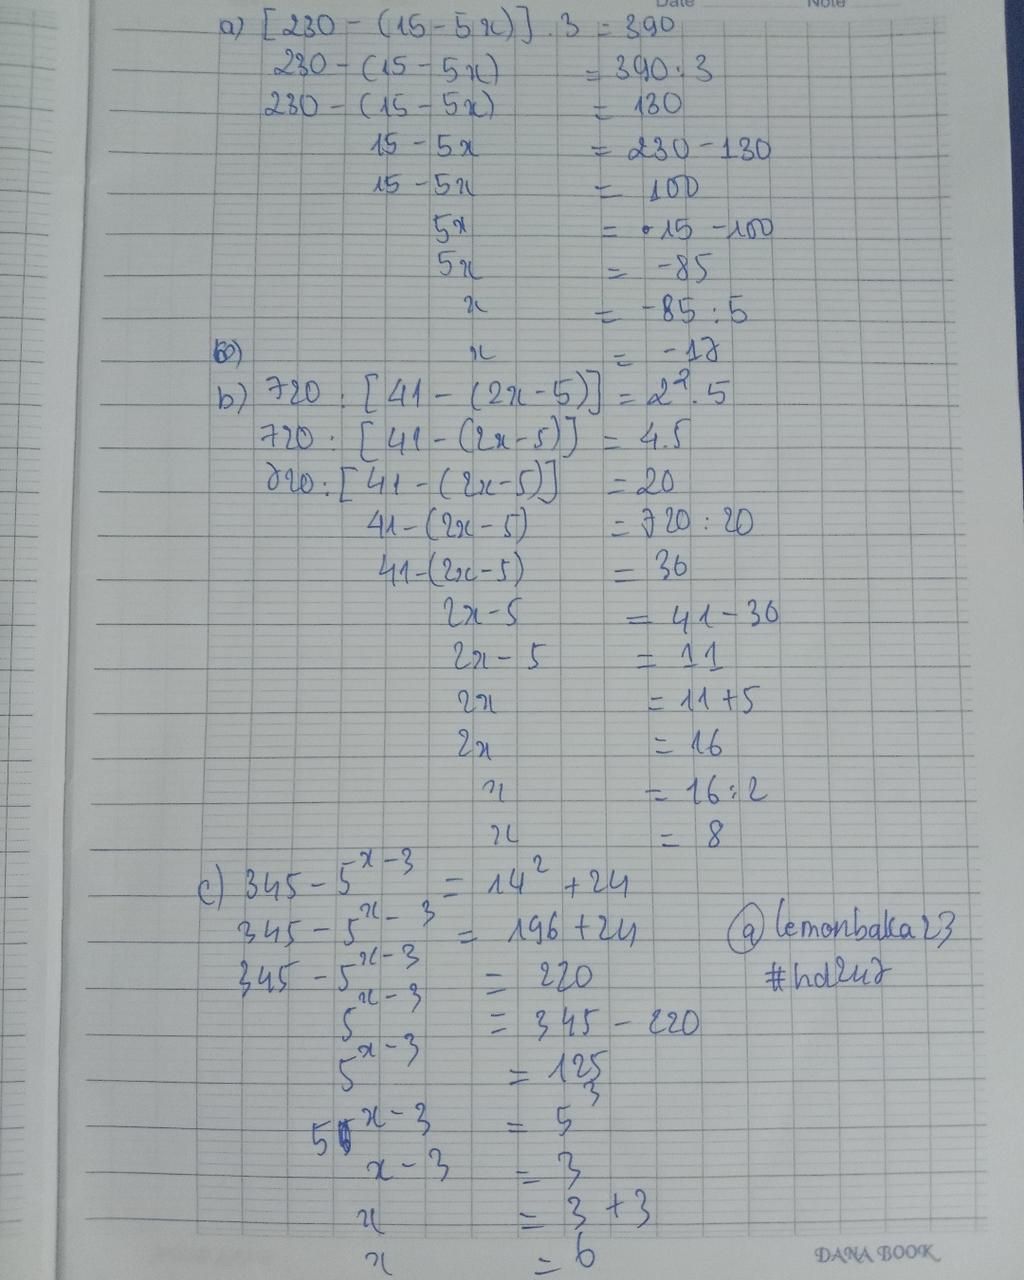 Date Note
a) [230 - (15 - 5x)] . 3 = 390
230 - (15 - 5x) = 390 : 3
230 - (15 - 5x) = 130
15 - 5x = 230 - 130
15 - 5x = 100
5x = 15 - 100
5x = -85
x = -85 : 5
x = -17
b) 720 : [41 - (2x - 5)] = 2² . 5
720 : [41 - (2x - 5)] = 4.5
720 : [41 - (2x - 5)] = 20
41 - (2x - 5) = 720 : 20
41 - (2x - 5) = 36
2x - 5 = 41 - 36
2x - 5 = 11
2x = 11 + 5
2x = 16
x = 16 : 2
x = 8
c) 345 - 5^{x - 3} = 14² + 24
345 - 5^{x - 3} = 196 + 24
345 - 5^{x - 3} = 220
5^{x - 3} = 345 - 220
5^{x - 3} = 125
5^{x - 3} = 5³
x - 3 = 3
x = 3 + 3
x = 6
@lemonbaka23
#hd247
DANA BOOK